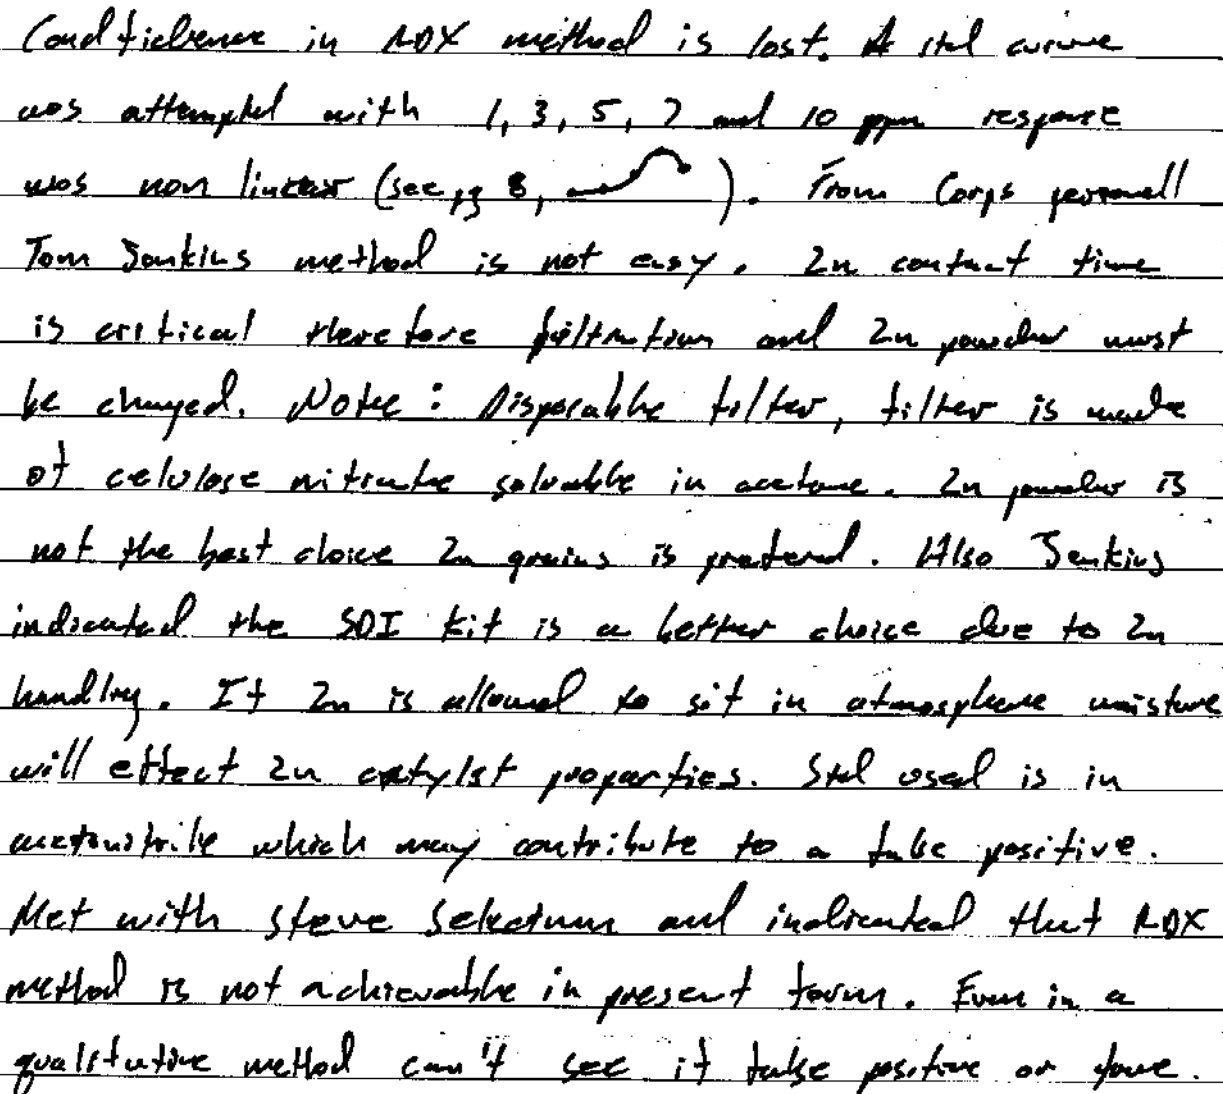 Confidence in RDX method is lost. A std curve
was attempted with 1, 3, 5, 7 and 10 ppm response
was non linear (see pg 8, ). From Corps personell
Tom Jenkins method is not easy. Zn contact time
is critical therefore filtration and Zn powder must
be changed. Note: Disposable filter, filter is made
of celulose nitrate soluable in acetone. Zn powder is
not the best choice Zn grains is prefered. Also Jenkins
indicated the SDI kit is a better choice due to Zn
handling. If Zn is allowed to sit in atmosphere moisture
will effect Zn catylst properties. Std used is in
acetonitrile which may contribute to a false positive.
Met with Steve and indicated that RDX
method is not achievable in present form. Even in a
qualitative method can't see if false positive or